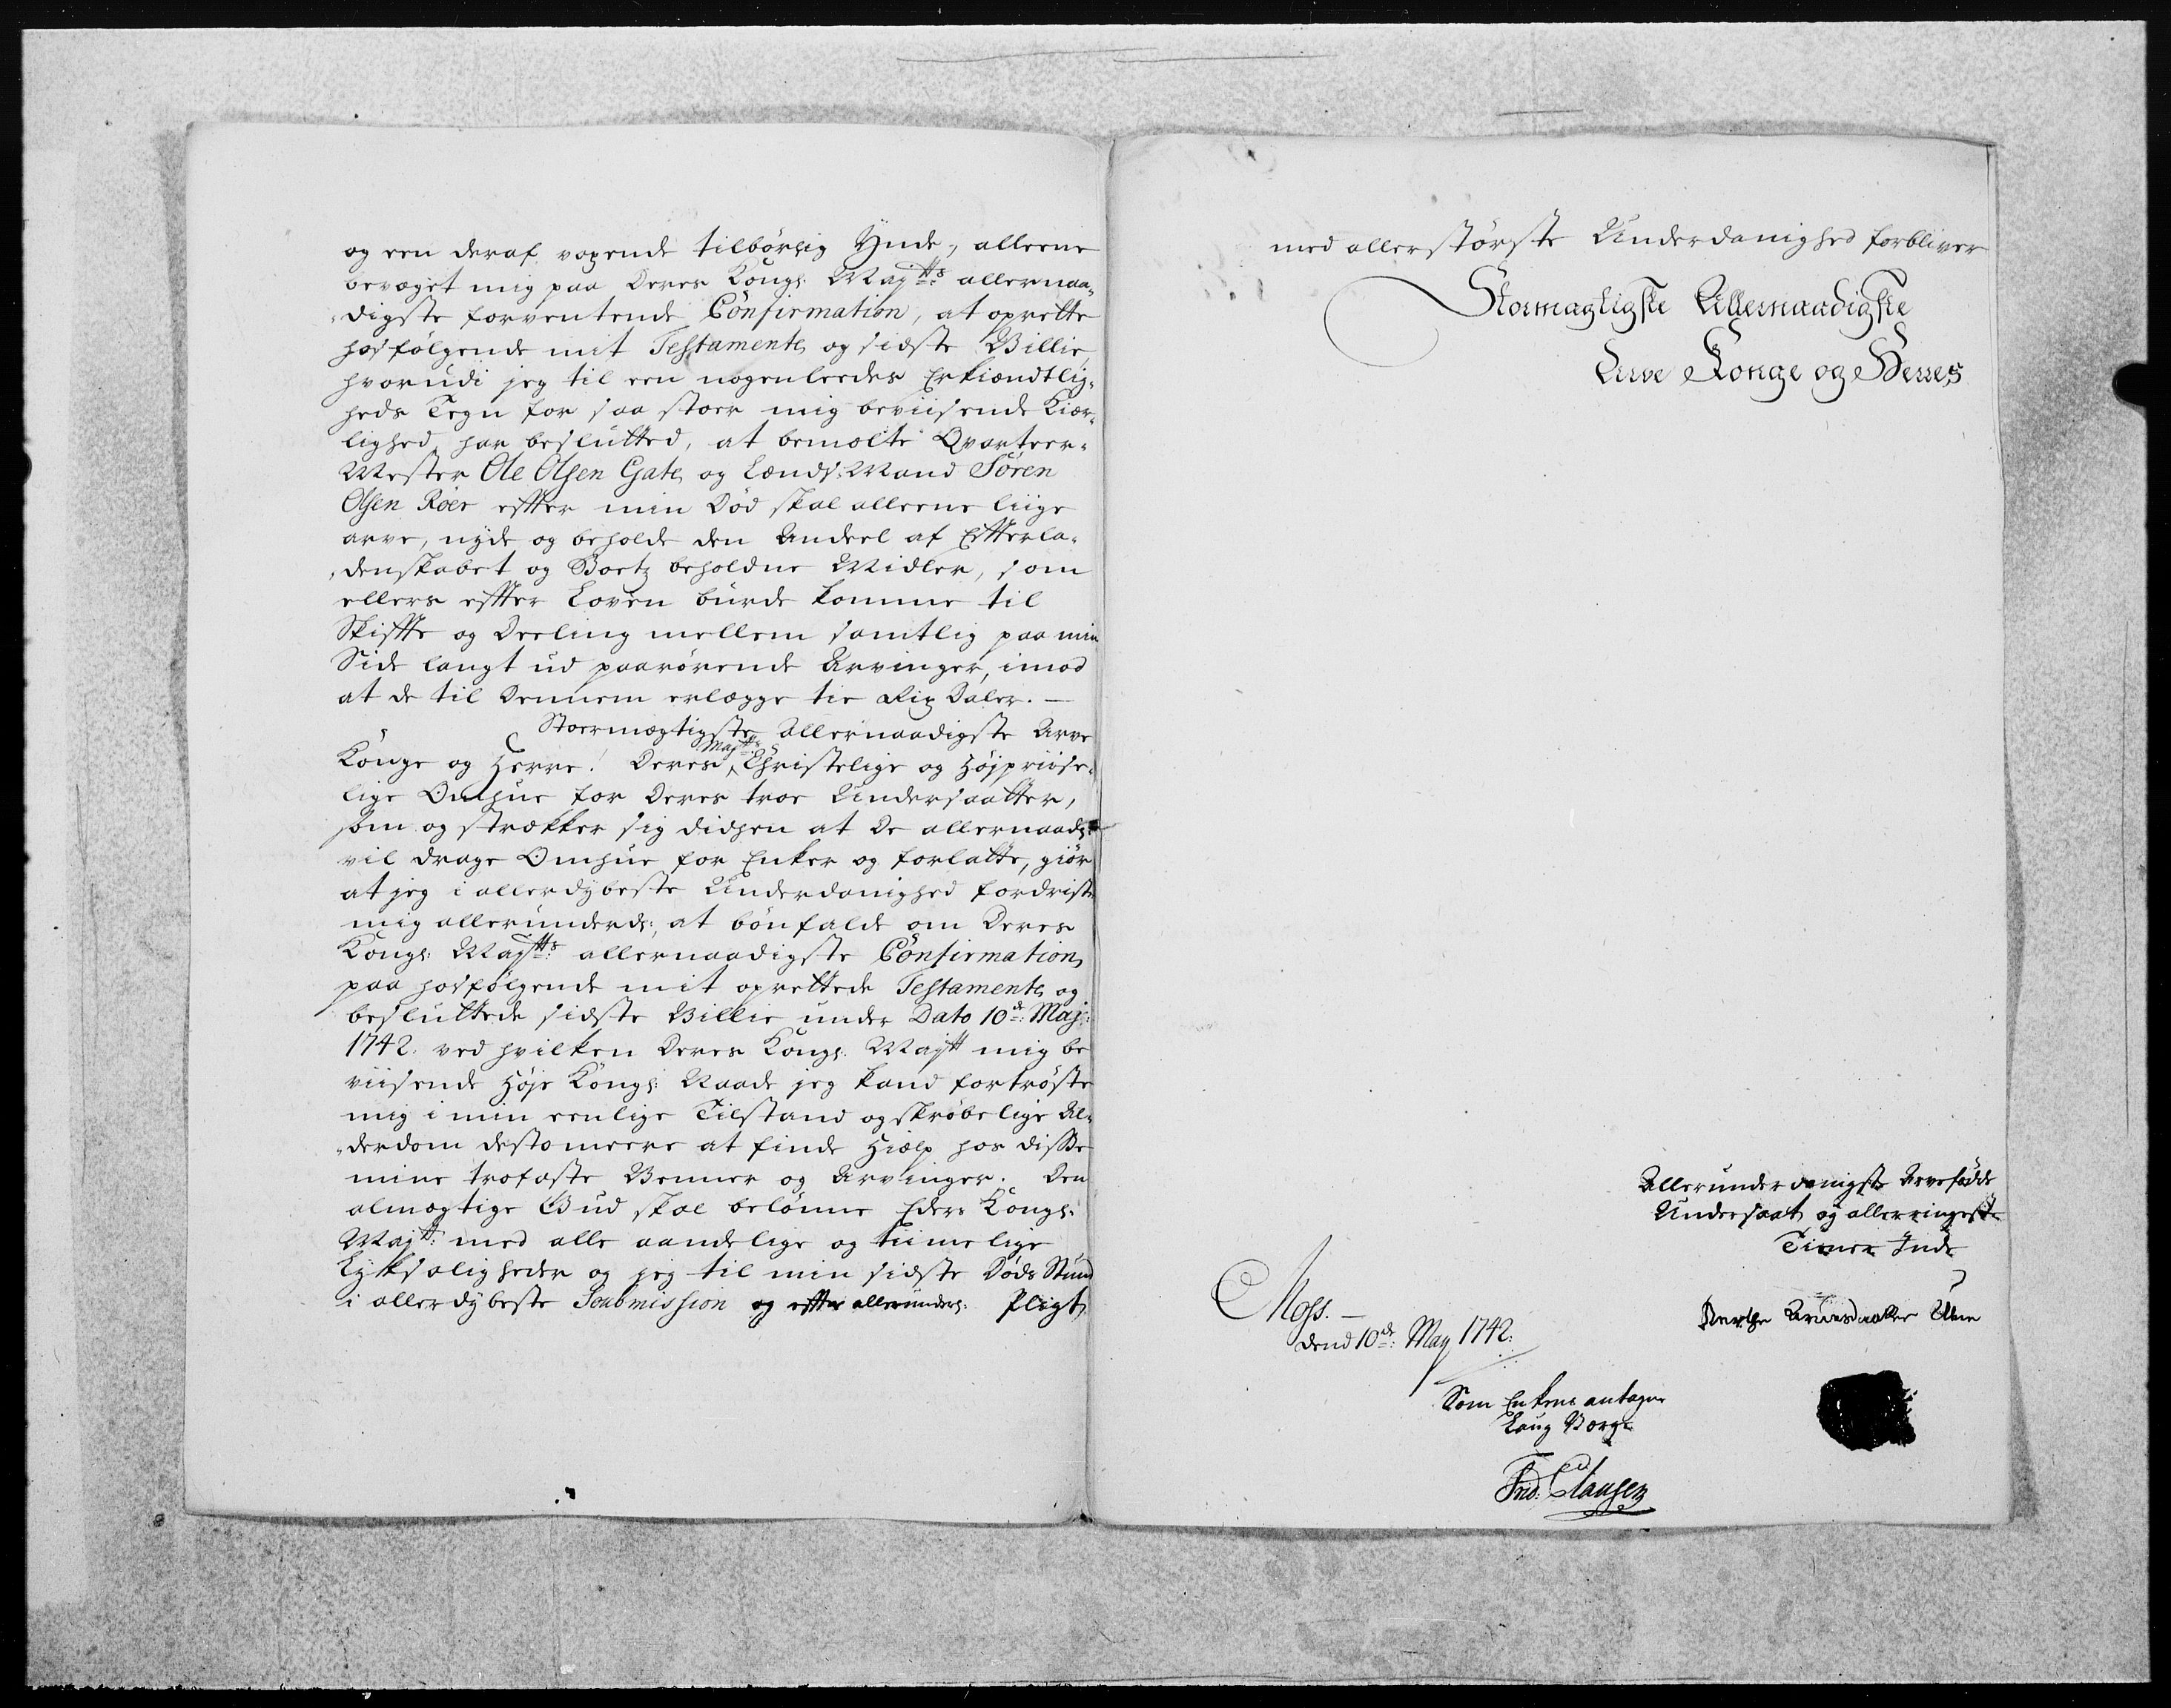 og een deraf voxende tilbørlig Ynde, alleene
bevæget mig paa Deres Kongl: Maj:tts allernaa-
digste forventende Confirmation, at oprette
hosfølgende mit Testamente og sidste Villie,
hvorudi jeg til een nogenleedes Erkiændtlig-
heds Tegn for saa stoer mig beviisende Kiær-
lighed, har beslutted, at bemelte Qvarteer-
Mester Ole Olsen Gate og Lænds-Mand Søren
Olsen Roer effter min Død skal alleene liige
arve, nyde og beholde den Andeel af Effterla-
denskabet og Boets beholdne Midler, som
ellers effter Loven burde komme til
Skiffte og Deeling mellem samtlig paa min
Side langt ud paarørende Arvinger, imod
at de til Dennem erlægge tie Rix Daler. —
Stoermægtigste Allernaadigste Arve
Konge og Herre! Deres Maj:tts Christelige og Højpriise-
lige Omhue for Deres troe Undersaatter,
som og strækker sig didhen at De allernaadl:
vil drage Omhue for Enker og forlatte, giør
at jeg i allerdybeste Underdanighed fordriste
mig allerunderdl:, at bønfalde om Deres
Kongl: Maj:tts allernaadigste Confirmation
paa hosfølgende mit oprettede Testamente og
besluttede sidste Villie under Dato 10de: Maj:
1742. ved hvilken Deres Kongl: Maj:tt mig be
viisende Høje Kongl: Naade jeg kand fortrøste
mig i min eenlige Tilstand og skrøbelige Al-
derdom destomeere at finde Hiælp hos disse
mine trofaste Venner og Arvinger. Den
almægtige Gud skal belønne Eders Kongl:
Maj:tt: med alle aandelige og tiimelige
Lyksaligheder og jeg til min sidste Døds Stund
i allerdybeste Soubmission og effter allerunderd: Pligt
med allerstørste Underdanighed forbliver
Stormægtigste Allernaadigste
Arve Konge og Herres
Allerunderdanigste Arvefødde
Undersaat og allerringeste
Tienerinde
Moss. —
dend 10de: May 1742.
Som Enkens antagne
Laug Værge
Frid: Clausen